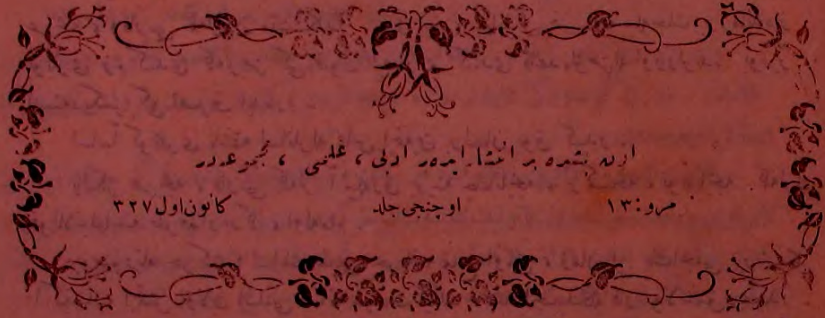 اون بشده بر انتشار ایدر ادبی ، علمی ، مجموعه‌در
نومرو : ١٣ اوچنجی جلد كانون اول ٣٢٧